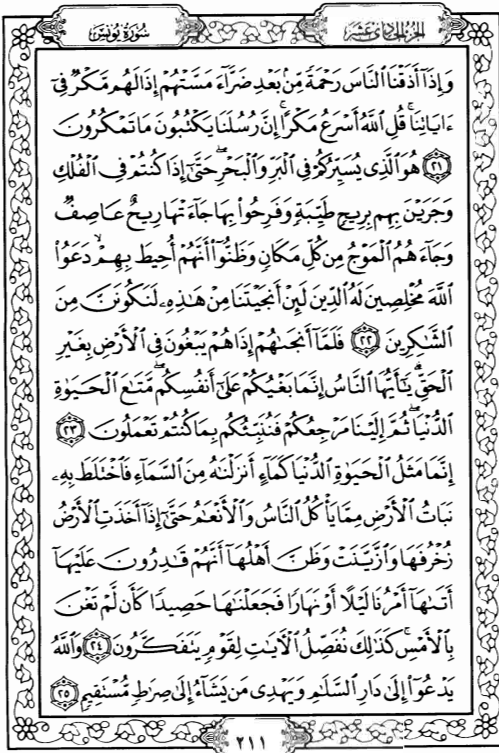 سُورَةُ يُونُسَ
الجُزْءُ الحَادِي عَشَرَ
وَإِذَآ أَذَقْنَا ٱلنَّاسَ رَحْمَةً مِّنۢ بَعْدِ ضَرَّآءَ مَسَّتْهُمْ إِذَا لَهُم مَّكْرٌ فِىٓ
ءَايَاتِنَا ۚ قُلِ ٱللَّهُ أَسْرَعُ مَكْرًا ۚ إِنَّ رُسُلَنَا يَكْتُبُونَ مَا تَمْكُرُونَ
٢١ هُوَ ٱلَّذِى يُسَيِّرُكُمْ فِى ٱلْبَرِّ وَٱلْبَحْرِ ۖ حَتَّىٰٓ إِذَا كُنتُمْ فِى ٱلْفُلْكِ
وَجَرَيْنَ بِهِم بِرِيحٍ طَيِّبَةٍ وَفَرِحُوا۟ بِهَا جَآءَتْهَا رِيحٌ عَاصِفٌ
وَجَآءَهُمُ ٱلْمَوْجُ مِن كُلِّ مَكَانٍ وَظَنُّوٓا۟ أَنَّهُمْ أُحِيطَ بِهِمْ ۙ دَعَوُا۟
ٱللَّهَ مُخْلِصِينَ لَهُ ٱلدِّينَ لَئِنْ أَنجَيْتَنَا مِنْ هَـٰذِهِۦ لَنَكُونَنَّ مِنَ
ٱلشَّـٰكِرِينَ ٢٢ فَلَمَّآ أَنجَىٰهُمْ إِذَا هُمْ يَبْغُونَ فِى ٱلْأَرْضِ بِغَيْرِ
ٱلْحَقِّ ۗ يَـٰٓأَيُّهَا ٱلنَّاسُ إِنَّمَا بَغْيُكُمْ عَلَىٰٓ أَنفُسِكُم ۖ مَّتَـٰعَ ٱلْحَيَوٰةِ
ٱلدُّنْيَا ۖ ثُمَّ إِلَيْنَا مَرْجِعُكُمْ فَنُنَبِّئُكُم بِمَا كُنتُمْ تَعْمَلُونَ ٢٣
إِنَّمَا مَثَلُ ٱلْحَيَوٰةِ ٱلدُّنْيَا كَمَآءٍ أَنزَلْنَـٰهُ مِنَ ٱلسَّمَآءِ فَٱخْتَلَطَ بِهِۦ
نَبَاتُ ٱلْأَرْضِ مِمَّا يَأْكُلُ ٱلنَّاسُ وَٱلْأَنْعَـٰمُ حَتَّىٰٓ إِذَآ أَخَذَتِ ٱلْأَرْضُ
زُخْرُفَهَا وَٱزَّيَّنَتْ وَظَنَّ أَهْلُهَآ أَنَّهُمْ قَـٰدِرُونَ عَلَيْهَآ
أَتَىٰهَآ أَمْرُنَا لَيْلًا أَوْ نَهَارًا فَجَعَلْنَـٰهَا حَصِيدًا كَأَن لَّمْ تَغْنَ
بِٱلْأَمْسِ ۚ كَذَٰلِكَ نُفَصِّلُ ٱلْآيَـٰتِ لِقَوْمٍ يَتَفَكَّرُونَ ٢٤ وَٱللَّهُ
يَدْعُوٓا۟ إِلَىٰ دَارِ ٱلسَّلَـٰمِ وَيَهْدِى مَن يَشَآءُ إِلَىٰ صِرَٰطٍ مُّسْتَقِيمٍ ٢٥
٢١١